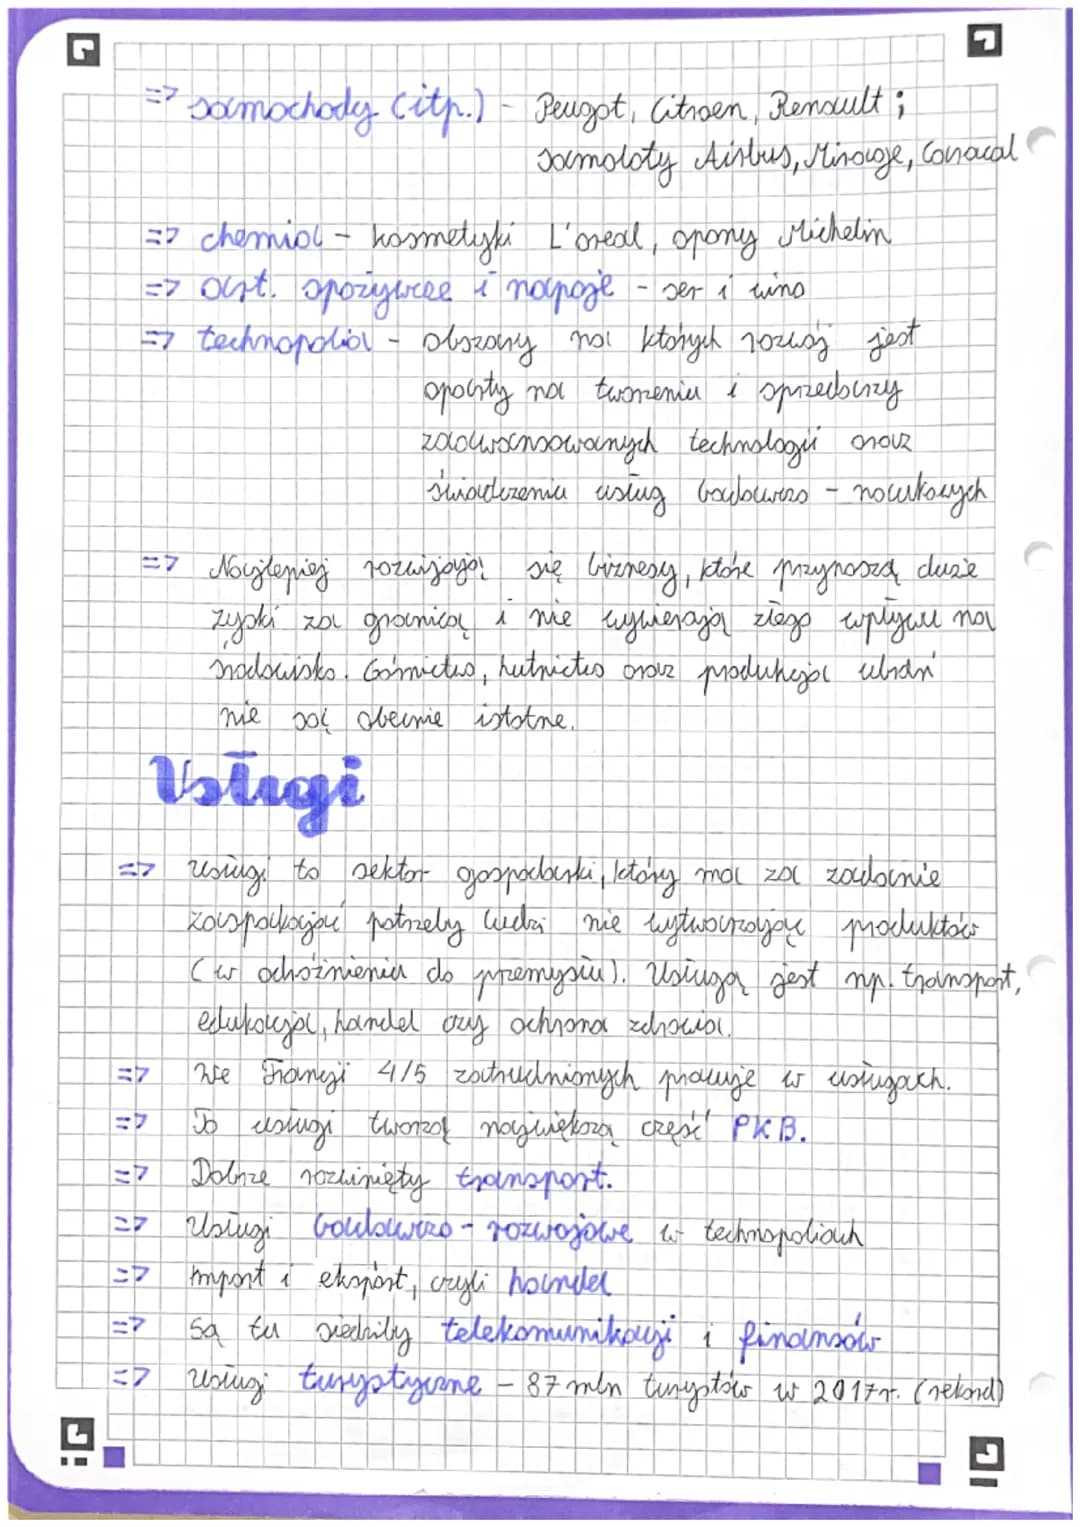 => samochody (itp.) - Peugot, Citroen, Renault ;
samoloty Airbus, Mirage, Caracal
=> chemia - kosmetyki L'oreal, opony Michelin
=> art. spożywcze i napoje - ser i wino
=> technopolia - obszary na których rozwój jest
oparty na tworzeniu i sprzedaży
zaawansowanych technologii oraz
świadczeniu usług badawczo - naukowych
=> Najlepiej rozwijają się biznesy, które przynoszą duże
zyski za granicą i nie wywierają złego wpływu na
środowisko. Górnictwo, hutnictwo oraz produkcja ubrań
nie są obecnie istotne.
Usługi
=> Usługi to sektor gospodarki, który ma za zadanie
zaspokajać potrzeby ludzi nie wytwarzając produktów
(w odróżnieniu do przemysłu). Usługą jest np. transport,
edukacja, handel czy ochrona zdrowia.
=> We Francji 4/5 zatrudnionych pracuje w usługach.
=> To usługi tworzą największą część PKB.
=> Dobrze rozwinięty transport.
=> Usługi badawczo - rozwojowe w technopoliach
=> Import i eksport, czyli handel
=> Są tu siedziby telekomunikacji i finansów
=> Usługi turystyczne - 87 mln turystów w 2017r. (rekord)